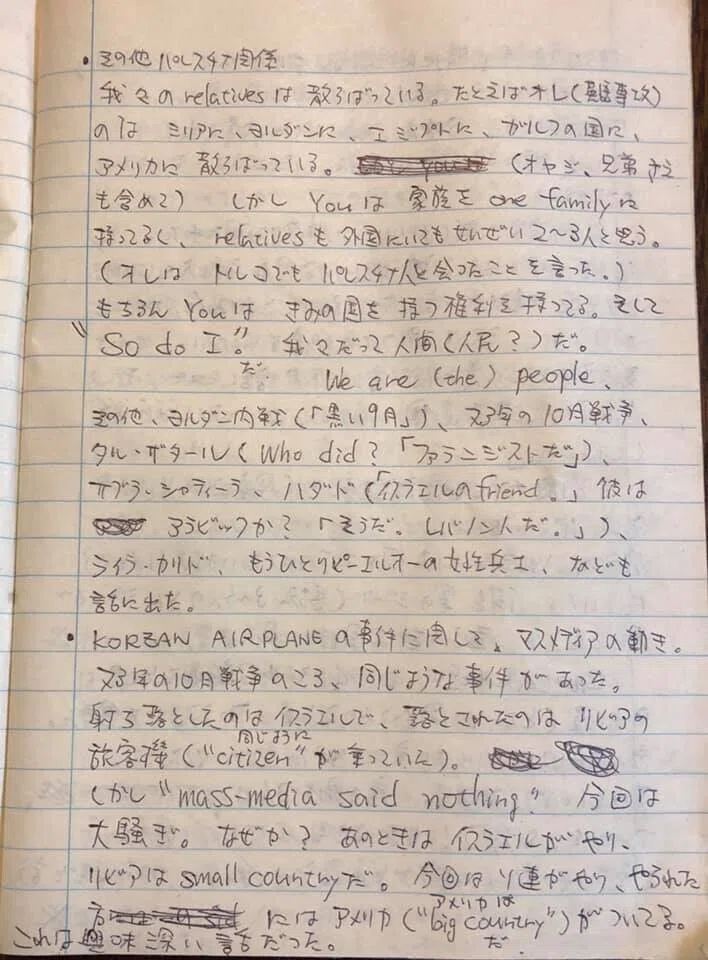 ・その他パレスチナ関係
我々のrelativesは散らばっている。たとえばオレ(英語専攻)
のは シリアに、ヨルダンに、エジプトに、ガルフの国に、
アメリカに散らばっている。(オヤジ、兄弟さえ
も含めて) しかし Youは 家族を one familyに
持ってるし、relativesも外国にいてもせいぜい2〜3人と思う。
(オレは トルコでも パレスチナ人と会ったことを言った。)
もちろん Youは きみの国を持つ権利を持ってる。そして
"So do I"だ。 我々だって人間(人民?)だ。
We are (the) people、
その他、ヨルダン内戦(「黒い9月」)、'73年の10月戦争、
タル・ザタール(Who did? 「ファランジストだ」)、
サブラ・シャティーラ、ハダド(「イスラエルのfriend。」彼は
アラビックか?「そうだ。レバノン人だ。」)、
ライラ・カリド、もうひとりピーエルオーの女性兵士、なども
話に出た。
・KOREAN AIRPLANEの事件に関して、マスメディアの動き。
'73年の10月戦争のころ、同じような事件があった。
射ち落としたのはイスラエルで、落とされたのは リビアの
旅客機(同じように"citizen"が乗っていた)。
しかし"mass-media said nothing" 今回は
大騒ぎ。なぜか? あのときは イスラエルが やり、
リビアは small countryだ。今回は ソ連がやり、やられた
方には アメリカ(アメリカは"big country"だ)がついてる。
これは興味深い話だった。